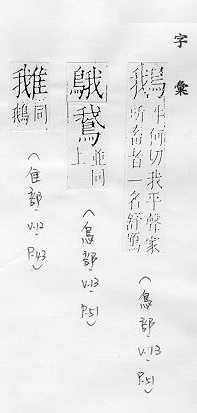 字彙
鵝 牛何切我平聲家
所畜者一名舒鴈
(鳥部 V.13 P.51)
䳗鵞 並同
上
(鳥部 V.13 P.51)
同
鵝
(隹部 V.12 P.43)